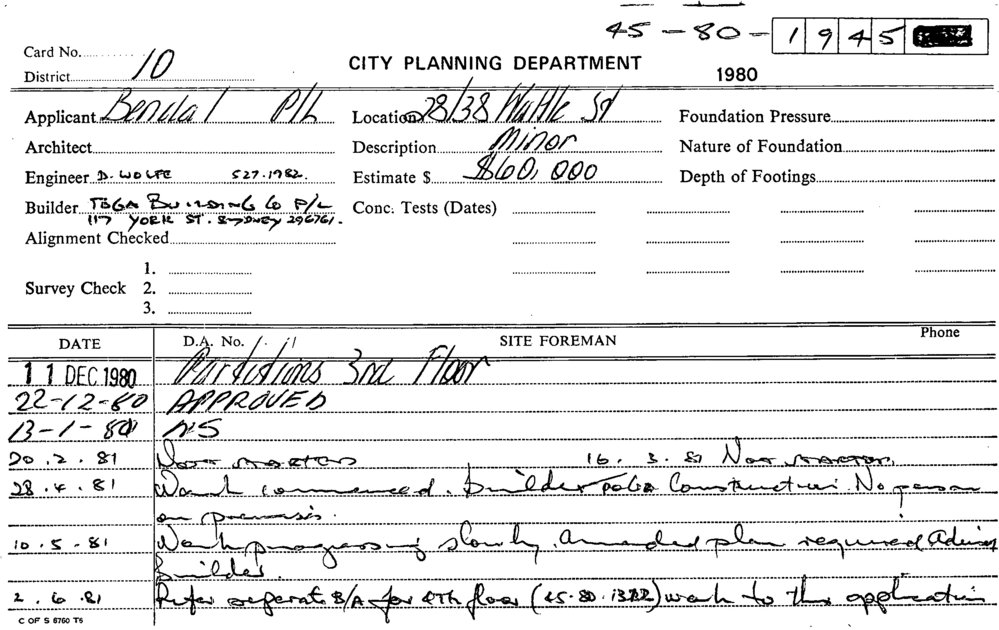 45-80-1945
Card No. 10
District
CITY PLANNING DEPARTMENT
1980
Applicant Bendal P/L
Location 28/38 Wattle St
Foundation Pressure
Architect
Description Minor
Nature of Foundation
Engineer D. WOLFE 527.1982.
Estimate $ $60,000
Depth of Footings
Builder TOGA BUILDING Co P/L
117 YORK ST. SYDNEY 296761.
Conc. Tests (Dates)
Alignment Checked
Survey Check 1.
2.
3.
DATE D.A. No. SITE FOREMAN Phone
11 DEC 1980 Partitions 3rd Floor
22-12-80 APPROVED
13-1-81 NS
20.2.81 Not STARTED 16.3.81 Not STARTED.
28.4.81 Work commenced. builder TOGA Construction. No person
on premises.
10.5.81 Work progressing slowly. Amended plan required Advised
Builder.
2.6.81 Refer seperate B/A for 4TH floor (45.80.1322) work to this application
C OF S 6760 T6